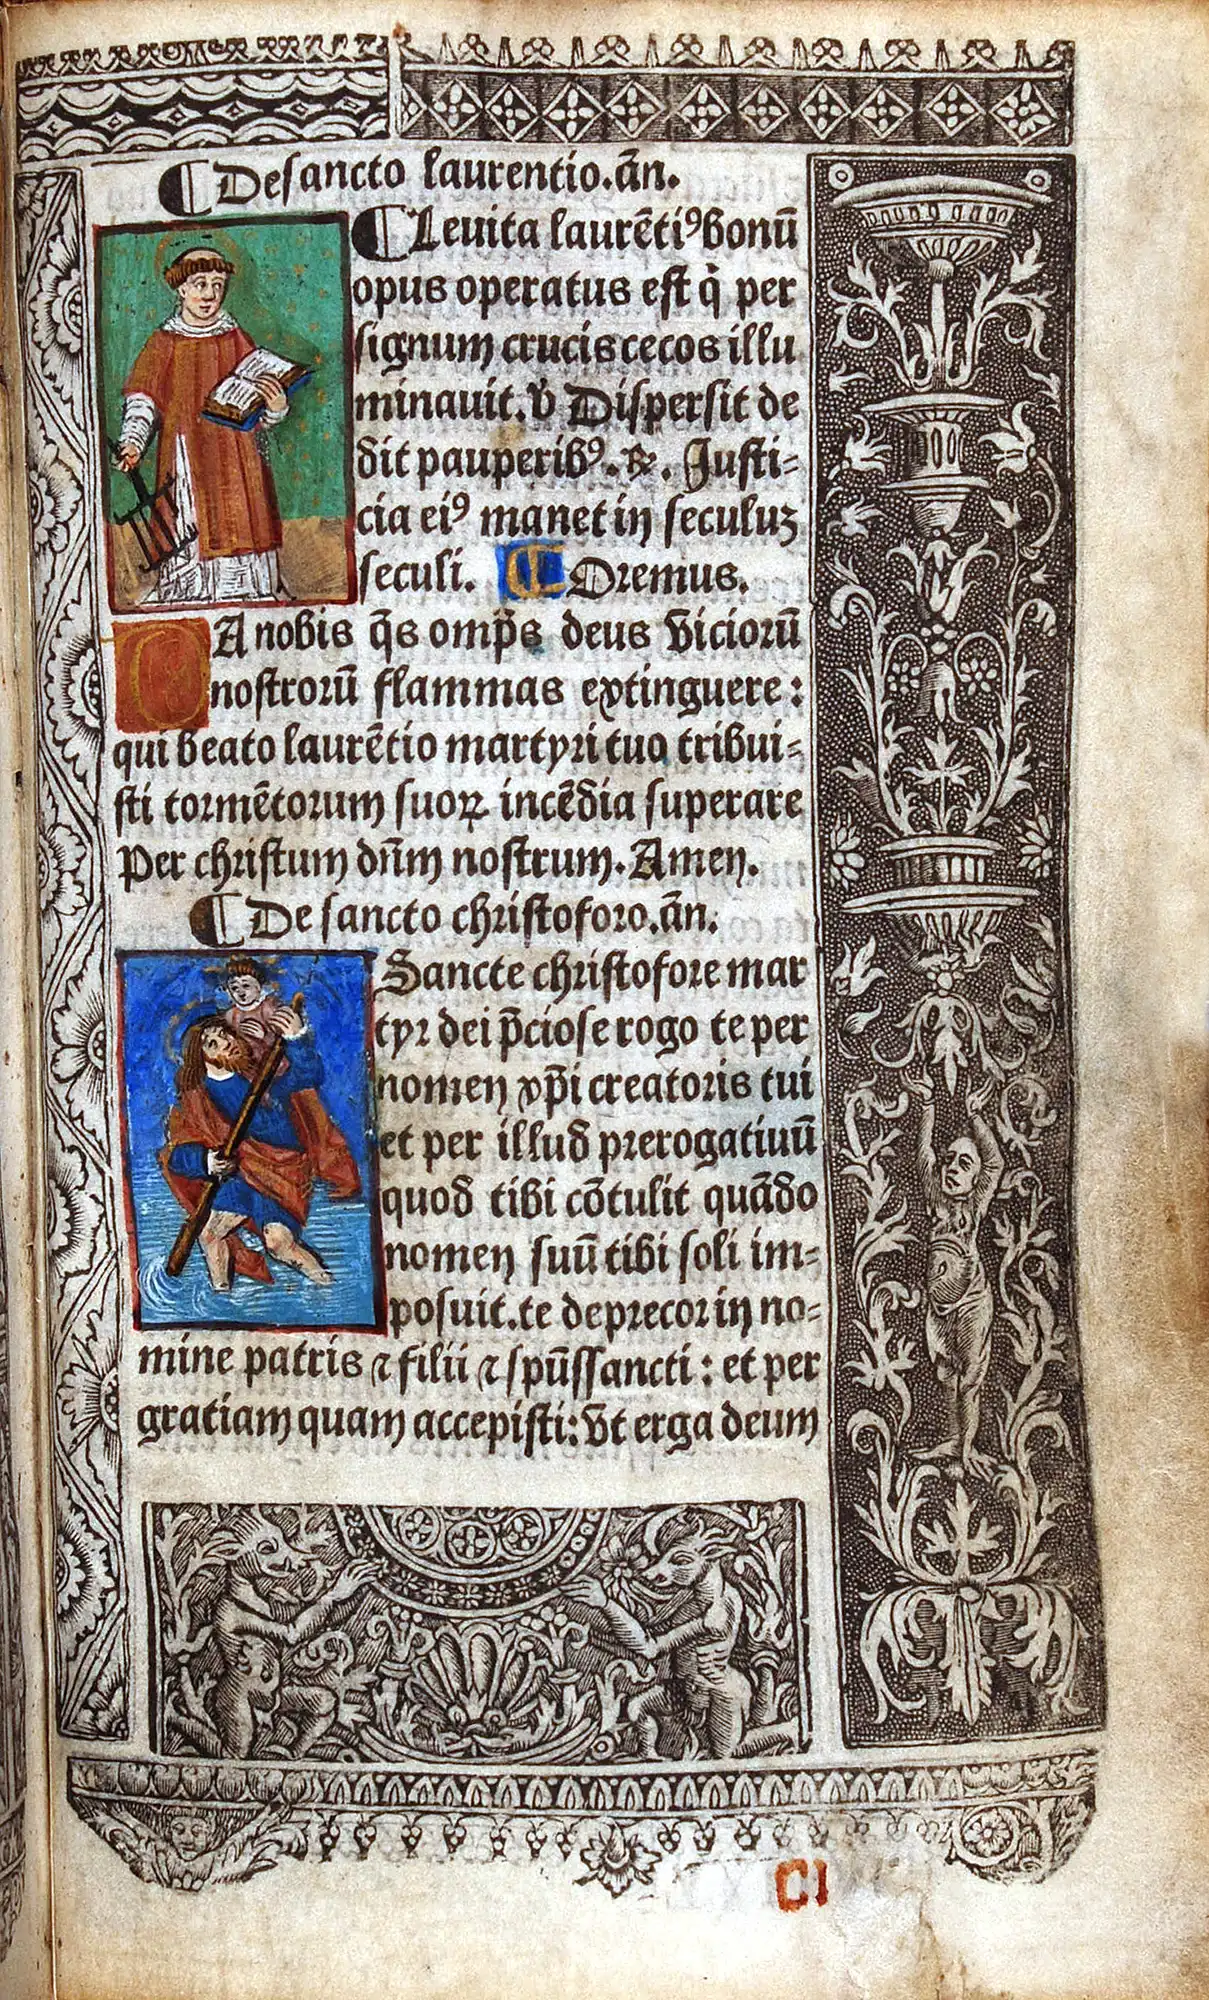 ⸿ De sancto laurentio.añ.
⸿ Leuita laurētiꝰ bonū
opus operatus est q̇ per
signum crucis cecos illu
minauit. ℣ Dispersit de
dit pauperibꝰ. ℟. Justi-
cia eiꝰ manet in seculuz
seculi. ⸿ Oremus.
DA nobis q̄s omp̄s deus viciorū
nostrorū flammas extinguere:
qui beato laurētio martyri tuo tribui-
sti tormētorum suoꝝ incēdia superare
Per christum dn̄m nostrum. Amen.
⸿ De sancto christoforo.añ.
Sancte christofore mar
tyr dei p̄ciose rogo te per
nomen xp̄i creatoris tui
et per illud prerogatiuū
quod tibi cōtulit quādo
nomen suū tibi soli im-
posuit.te deprecor in no-
mine patris ⁊ filii ⁊ spūssancti: et per
gratiam quam accepisti: vt erga deum
CI